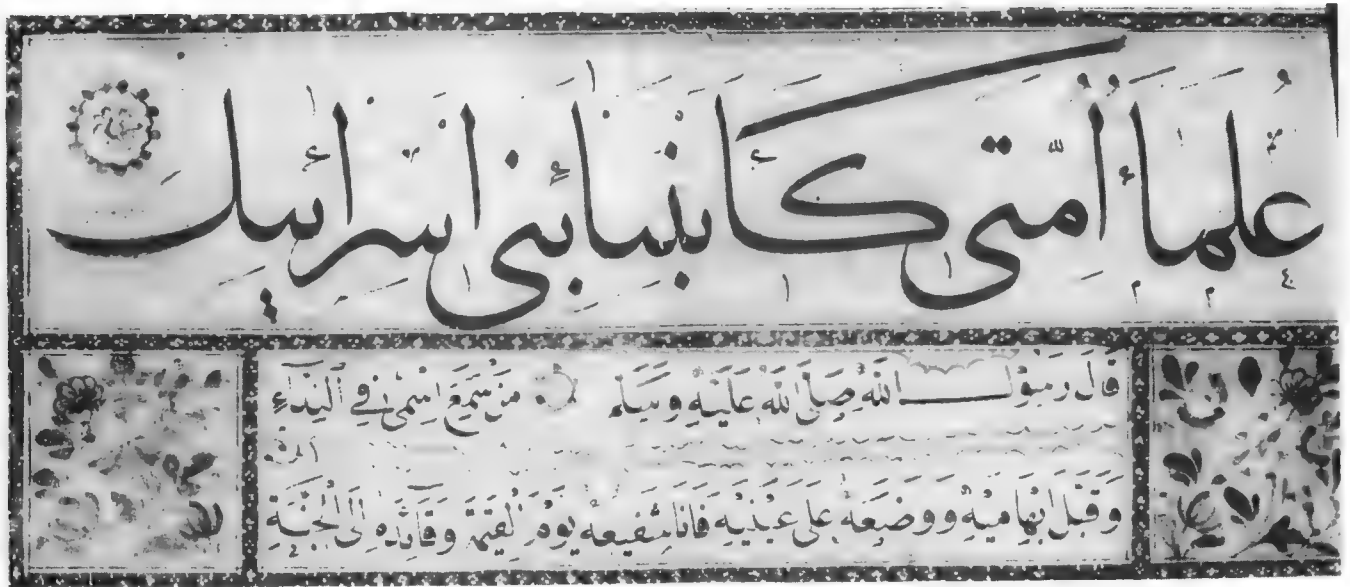 عُلَمَاءُ أُمَّتِي كَأَنْبِيَاءِ بَنِي إِسْرَائِيلَ
قَالَ رَسُولُ اللَّهِ صَلَّى اللَّهُ عَلَيْهِ وَسَلَّمَ مَنْ سَمِعَ اسْمِي فِي النِّدَاءِ
وَقَبَّلَ إِبْهَامَيْهِ وَوَضَعَهُ عَلَى عَيْنَيْهِ فَأَنَا شَفِيعُهُ يَوْمَ الْقِيمَةِ وَقَائِدُهُ إِلَى الْجَنَّةِ